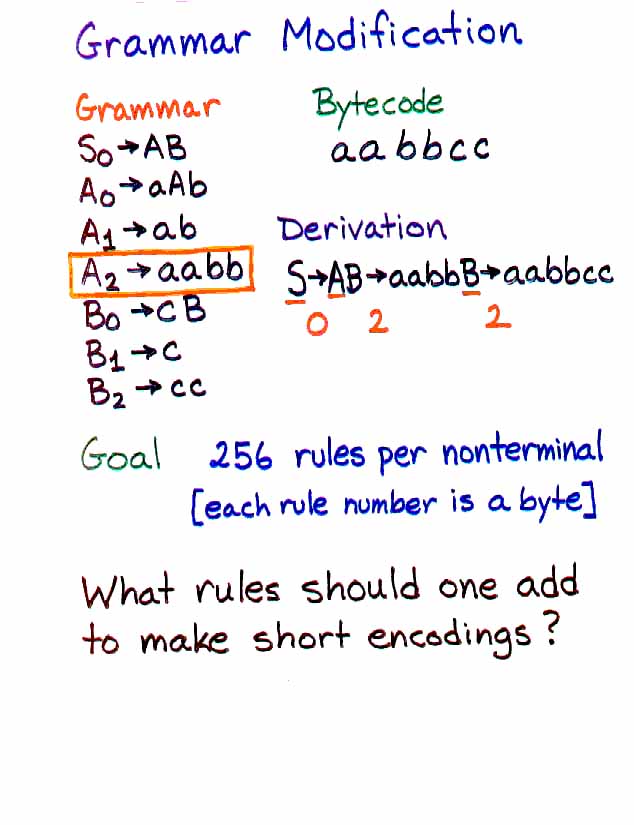 Grammar Modification
Grammar
S₀→AB
A₀→aAb
A₁→ab
A₂→aabb
B₀→cB
B₁→c
B₂→cc
Bytecode
aabbcc
Derivation
S→AB→aabbB→aabbcc
0 2 2
Goal 256 rules per nonterminal
[each rule number is a byte]
What rules should one add
to make short encodings?